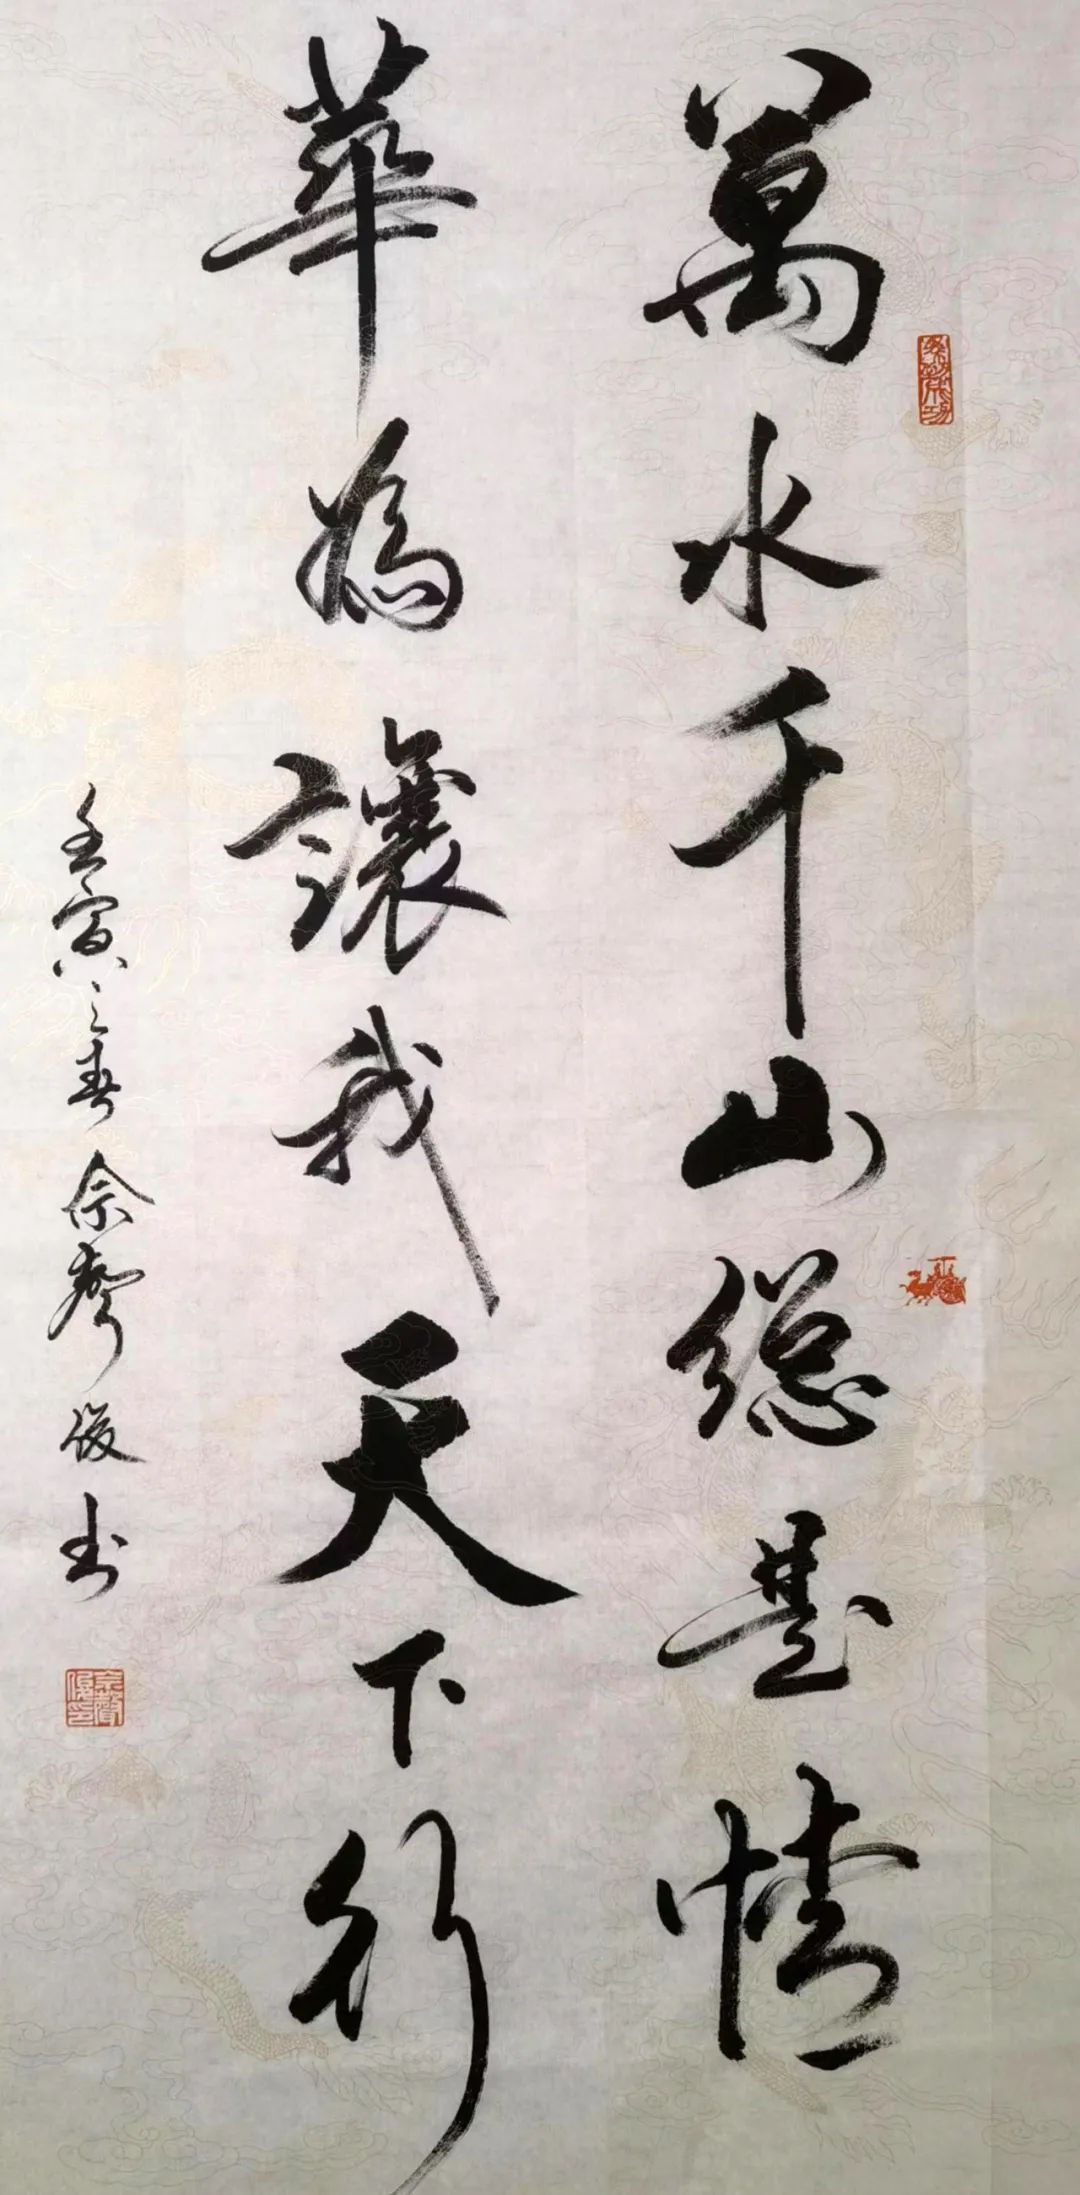 萬水千山總是情
華為讓我天下行
壬寅之春 佘聲俊书